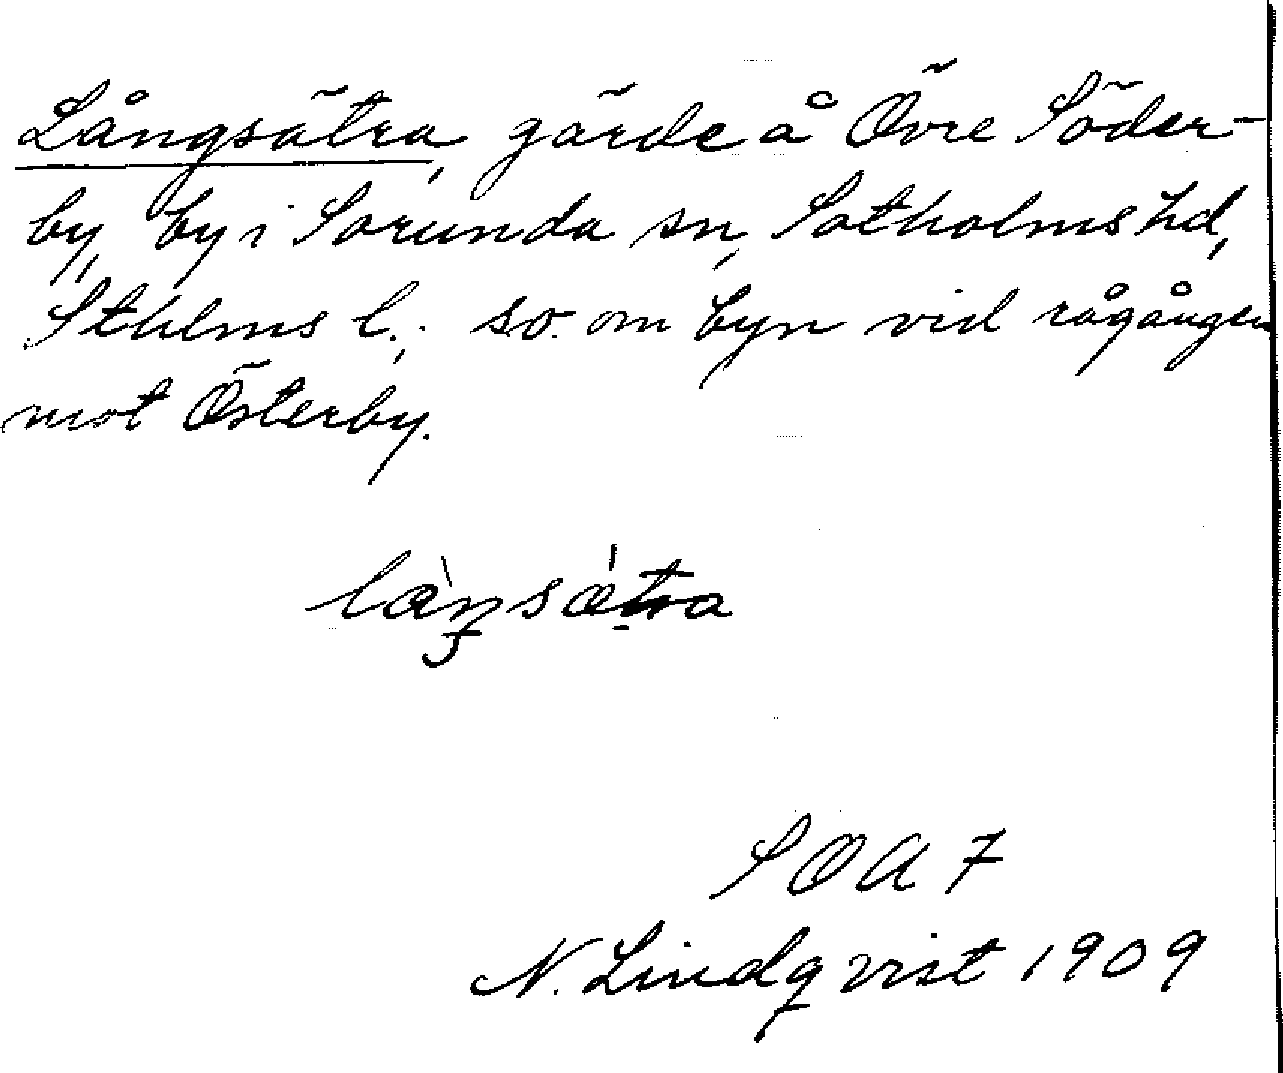 Långsätra, gärde å Övre Söder-
by, by i Sorunda sn, Sotholms hd,
Sthlms l.; so. om byn vid rågången
mot Österby.
SOA 7
N. Lindqvist 1909